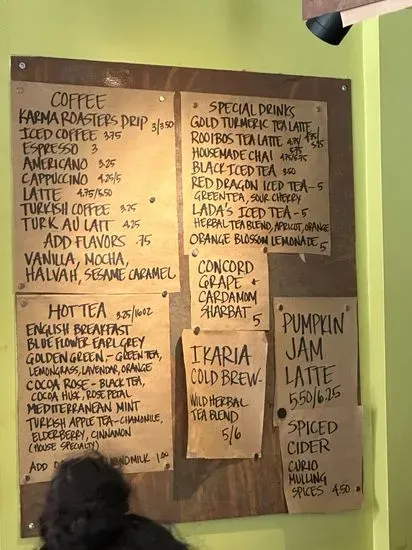 COFFEE
KARMA ROASTERS DRIP 3/3.50
ICED COFFEE 3.75
ESPRESSO 3
AMERICANO 3.25
CAPPUCCINO 4.25/5
LATTE 4.75/5.50
TURKISH COFFEE 3.25
TURK AU LAIT 4.25
ADD FLAVORS .75
VANILLA, MOCHA,
HALVAH, SESAME CARAMEL
HOT TEA 3.25/16OZ
ENGLISH BREAKFAST
BLUE FLOWER EARL GREY
GOLDEN GREEN - GREEN TEA,
LEMONGRASS, LAVENDAR, ORANGE
COCOA ROSE - BLACK TEA,
COCOA HUSK, ROSE PETAL
MEDITERRANEAN MINT
TURKISH APPLE TEA - CHAMOMILE,
ELDERBERRY, CINNAMON
(HOUSE SPECIALTY)
ADD 1.00
SPECIAL DRINKS
GOLD TURMERIC TEA LATTE
ROOIBOS TEA LATTE 4.75/5.75
HOUSEMADE CHAI 4.75/5.75
BLACK ICED TEA 3.50
RED DRAGON ICED TEA - 5
GREEN TEA, SOUR CHERRY
LADA'S ICED TEA - 5
HERBAL TEA BLEND, APRICOT, ORANGE
ORANGE BLOSSOM LEMONADE 5
CONCORD
GRAPE +
CARDAMOM
SHARBAT
5
IKARIA
COLD BREW -
WILD HERBAL
TEA BLEND
5/6
PUMPKIN
JAM
LATTE
5.50/6.25
SPICED
CIDER
CURIO
MULLING
SPICES 4.50